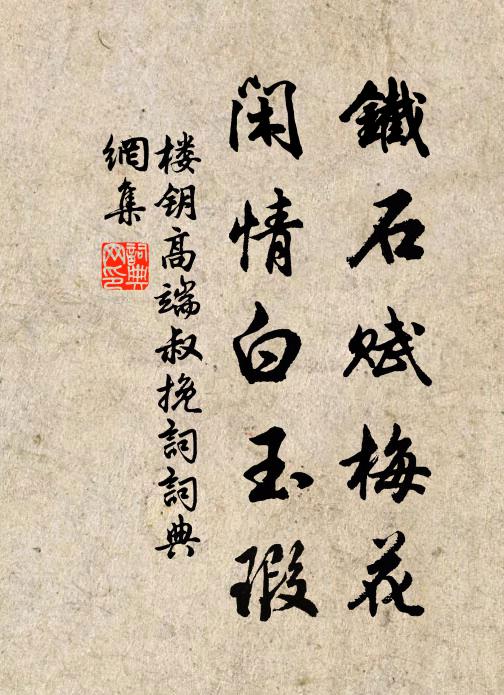 鐵石赋梅花
閑情白玉瑕
楼钥高端叔挽詞詞典
網集
詞典
网印